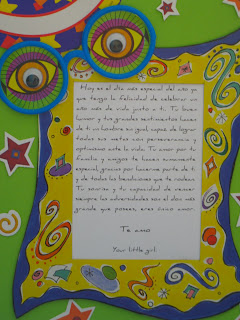 Hoy es el día más especial del año ya
que tengo la felicidad de celebrar un
año más de vida junto a ti. Tu buen
humor y tus grandes sentimientos hacen
de ti un hombre sin igual capaz de lograr
todas sus metas con perseverancia y
optimismo ante la vida. Tu amor por tu
familia y amigos te hacen sumamente
especial gracias por hacerme parte de ti
y de todas las bendiciones que te rodean.
Tu sonrisa y tu capacidad de vencer
siempre las adversidades son el don más
grande que posees, eres único amor.
Te amo
Your little girl.